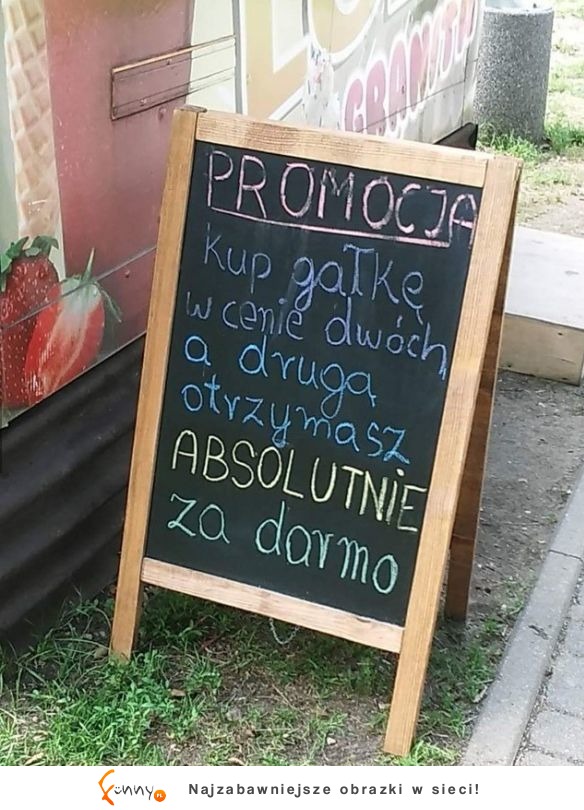 GRANITA
PROMOCJA
Kup gałkę
w cenie dwóch
a drugą
otrzymasz
ABSOLUTNIE
za darmo
Funny.PL
Najzabawniejsze obrazki w sieci!